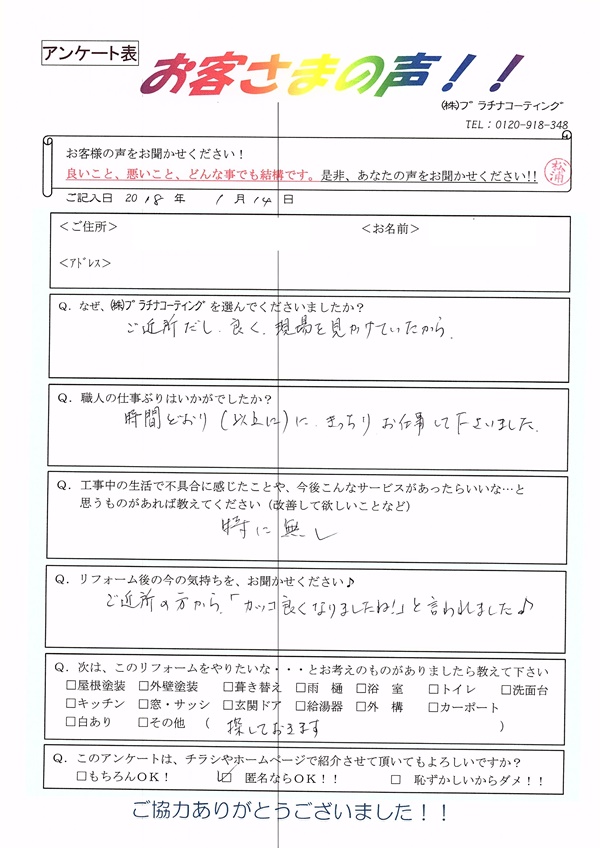 アンケート表
お客さまの声！！
㈱プラチナコーティング
TEL：0120-918-348
お客様の声をお聞かせください！
良いこと、悪いこと、どんな事でも結構です。是非、あなたの声をお聞かせください!!
松浦
ご記入日 2018 年 1月 14日
＜ご住所＞ ＜お名前＞
＜アドレス＞
Q．なぜ、㈱プラチナコーティングを選んでくださいましたか？
ご近所だし、良く、現場を見かけていたから、
Q．職人の仕事ぶりはいかがでしたか？
時間どおり（以上に）に、きっちりお仕事して下さいました。
Q．工事中の生活で不具合に感じたことや、今後こんなサービスがあったらいいな…と
思うものがあれば教えてください（改善して欲しいことなど）
特に無し
Q．リフォーム後の今の気持ちを、お聞かせください♪
ご近所の方から、「カッコ良くなりましたね!」と言われました♪
Q．次は、このリフォームをやりたいな・・・とお考えのものがありましたら教えて下さい
□屋根塗装 □外壁塗装 □葺き替え □雨 樋 □浴 室 □トイレ □洗面台
□キッチン □窓・サッシ □玄関ドア □給湯器 □外 構 □カーポート
□白あり □その他 （ 探しておきます ）
Q．このアンケートは、チラシやホームページで紹介させて頂いてもよろしいですか？
□もちろんOK！ ☑ 匿名ならOK！！ □ 恥ずかしいからダメ！！
ご協力ありがとうございました！！